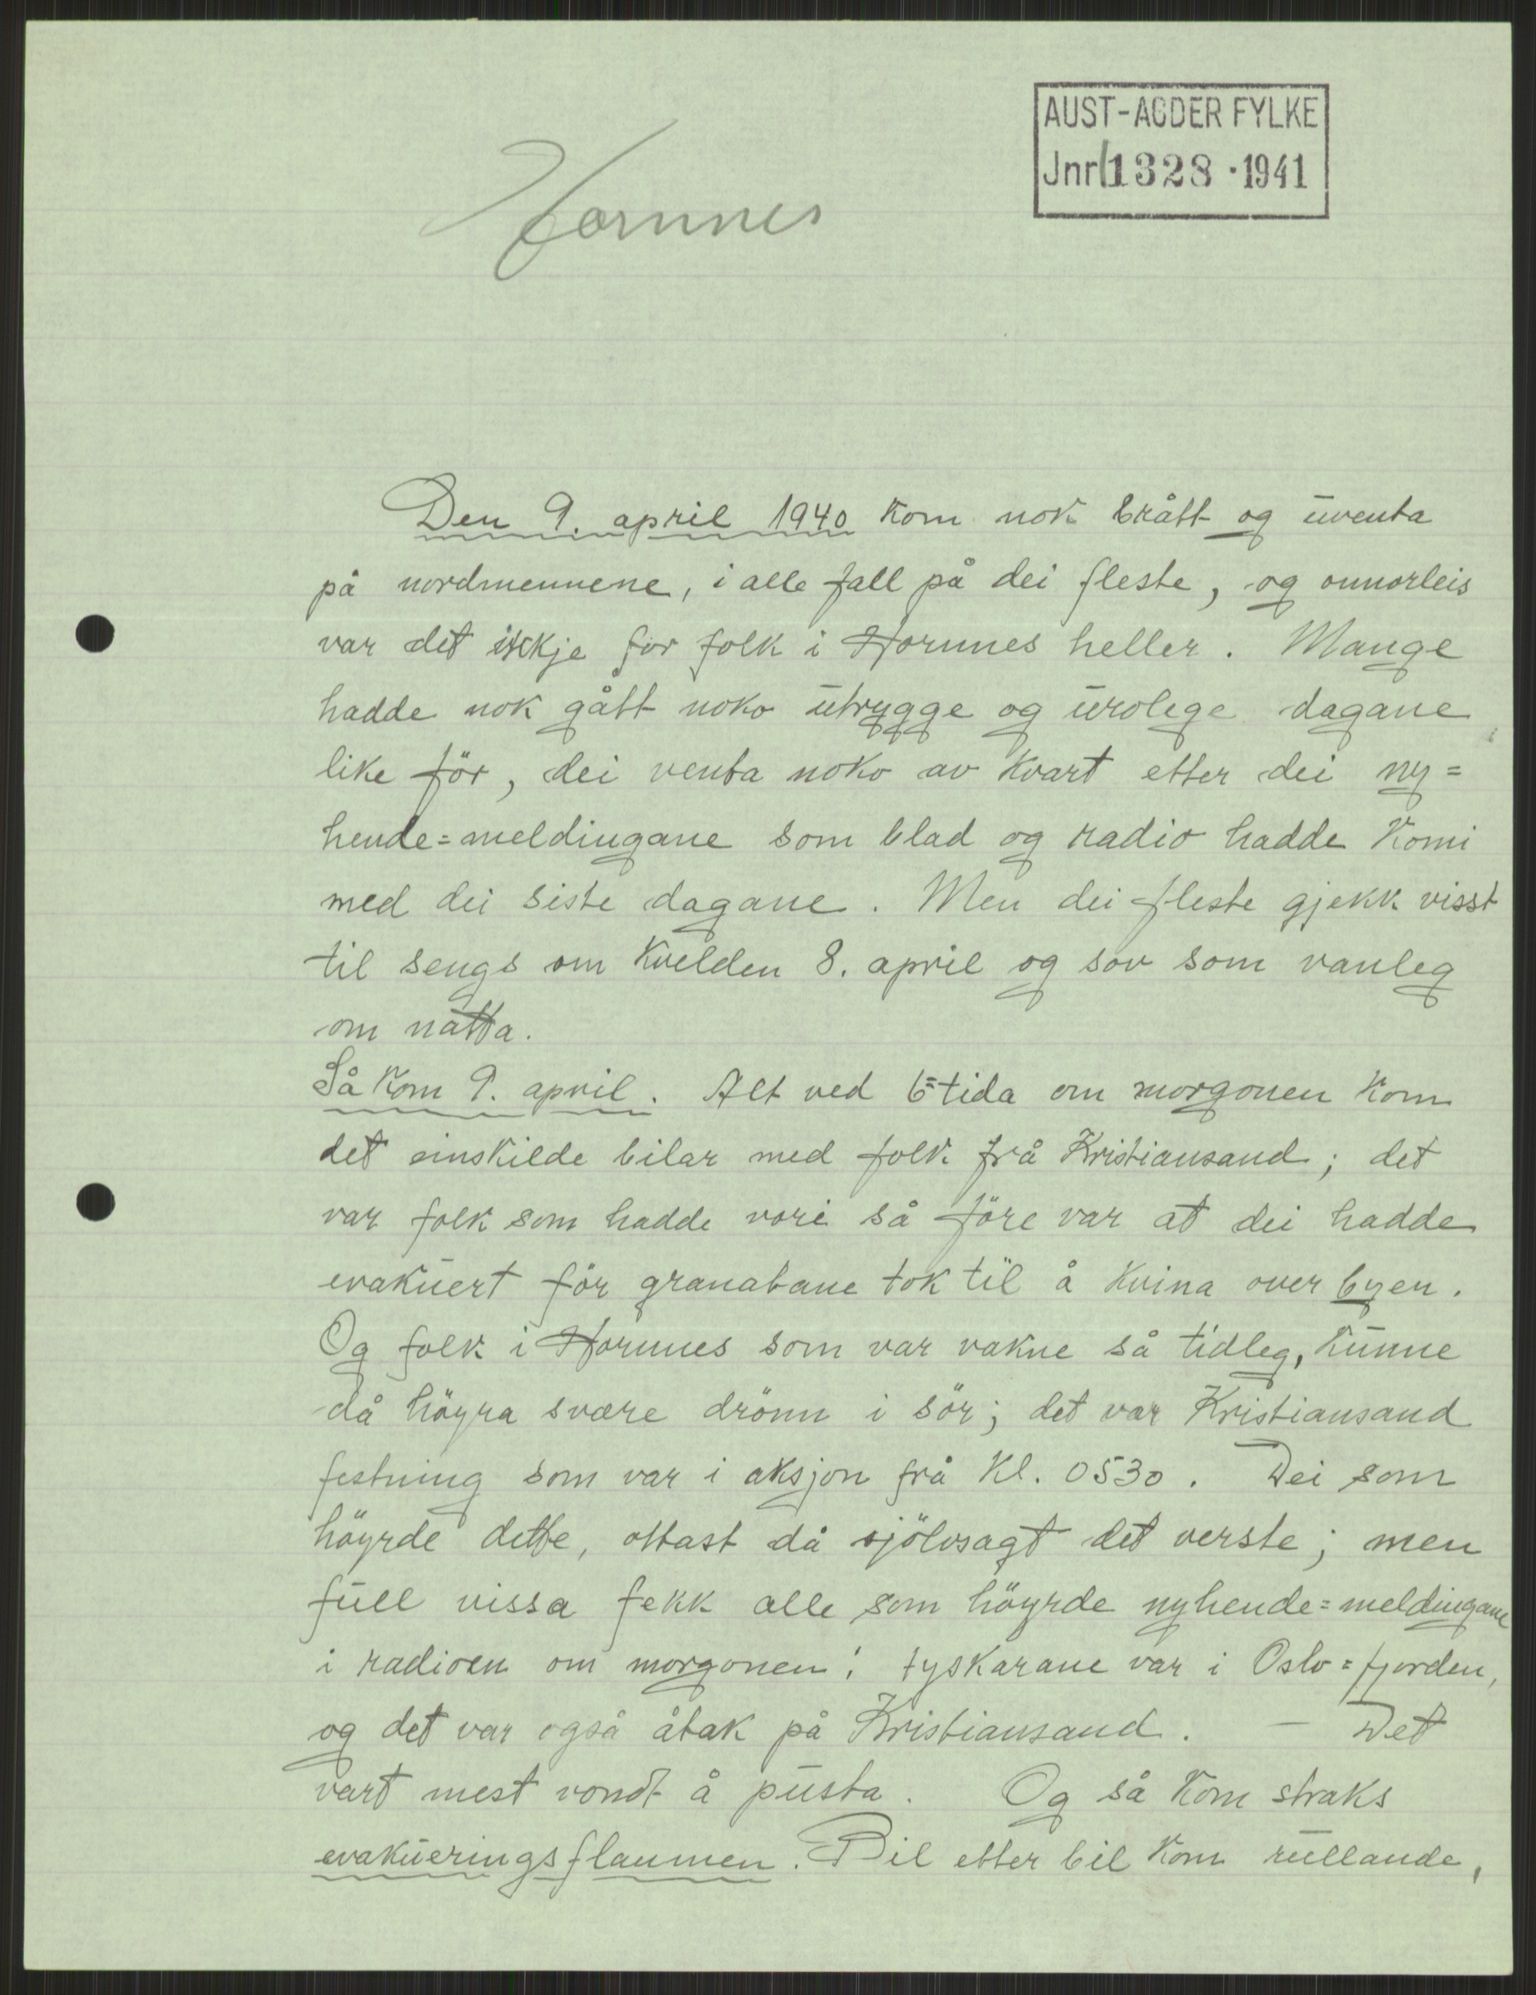 AUST-AGDER FYLKE
Jnr 1328 · 1941
Hornnes
Den 9. april 1940 kom nok brått og uventa
på nordmennene, i alle fall på dei fleste, og onnorleis
var det ikkje for folk i Hornnes heller. Mange
hadde nok gått noko utrygge og urolege dagane
like för, dei venta noko av kvart etter dei ny=
hende=meldingane som blad og radio hadde komi
med dei siste dagane. Men dei fleste gjekk visst
til sengs om kvelden 8. april og sov som vanleg
om natta.
Så kom 9. april. Alt ved 6=tida om morgonen kom
det einskilde bilar med folk frå Kristiansand; det
var folk som hadde vori så före var at dei hadde
evakuert för granatane tok til å kvina over byen.
Og folk i Hornnes som var vakne så tidleg, kunne
då höyra svære drönn i sör; det var Kristiansand
festning som var i aksjon frå kl. 0530. Dei som
höyrde dette, ottast då sjölvsagt det verste; men
full vissa fekk alle som höyrde nyhende=meldingane
i radioen om morgonen: tyskarane var i Oslo=fjorden,
og det var også åtak på Kristiansand. — Det
vart mest vondt å pusta. Og så kom straks
evakueringsflaumen. Bil etter bil kom rullande,